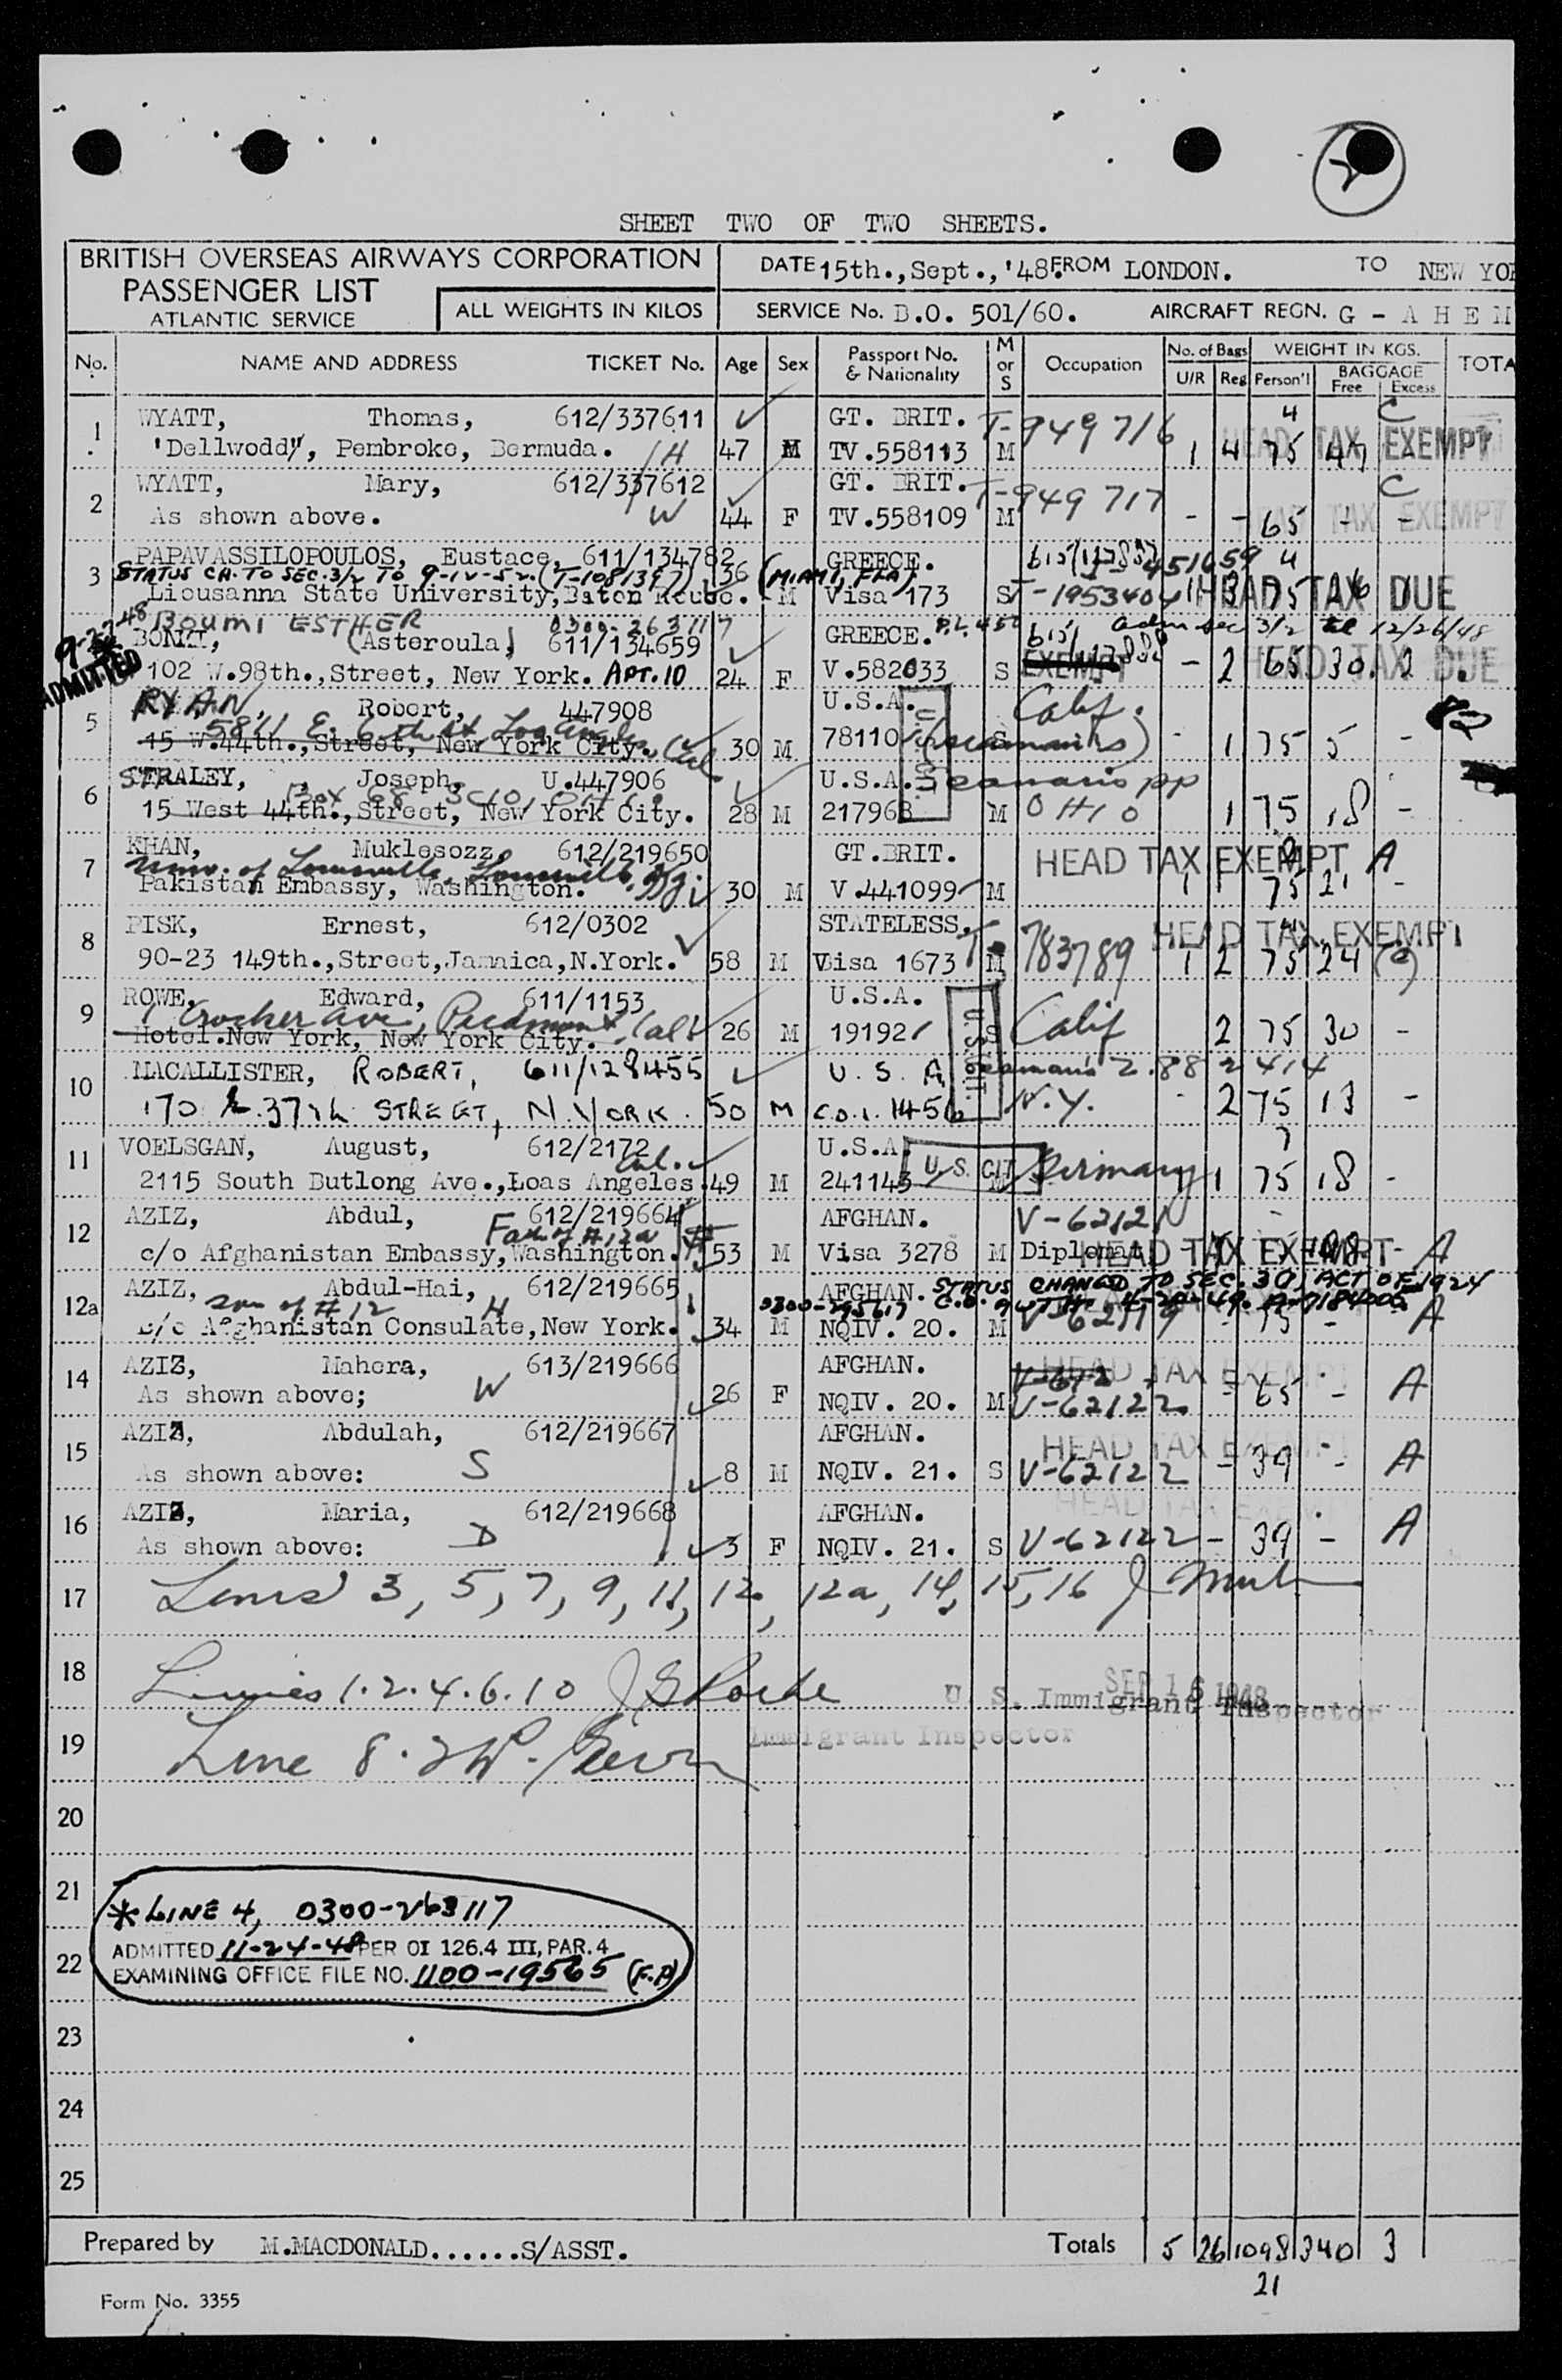 SHEET TWO OF TWO SHEETS.
BRITISH OVERSEAS AIRWAYS CORPORATION
PASSENGER LIST
ATLANTIC SERVICE
ALL WEIGHTS IN KILOS
DATE 15th.,Sept.,'48. FROM LONDON. TO NEW YOR
SERVICE No. B.O. 501/60. AIRCRAFT REGN. G - A H E M
No. NAME AND ADDRESS TICKET No. Age Sex Passport No. & Nationality M or S Occupation No. of Bags U/R Reg WEIGHT IN KGS. Person'l BAGGAGE Free Excess TOTA
1 WYATT, Thomas, 612/337611 GT. BRIT. T-949716 4 C
HEAD TAX EXEMPT
'Dellwoddy", Pembroke, Bermuda. H 47 M TV.558113 M 1 4 75 47
2 WYATT, Mary, 612/337612 GT. BRIT. T-949717 C
As shown above. W 44 F TV.558109 M - - 65 - -
TAX EXEMPT
3 PAPAVASSILOPOULOS, Eustace, 611/134782 GREECE. 451659 4
STATUS CH. TO SEC. 3/2 TO 9-12-52. (T-1081397) 36 (MIAMI, FLA)
Liousanna State University, Baton Rouge. M Visa 173 S T-1953404 1 3 75 26 1
HEAD TAX DUE
BOUMI ESTHER 0300-263117
(Asteroula) 611/134659 GREECE. adm sec 3/2 til 12/26/48
ADMITTED
102 W.98th.,Street, New York. APT.10 24 F V.582033 S EXEMPT - 2 65 30. 2
HEAD TAX DUE
5 RYAN, Robert, 447908 U.S.A. Calif.
5811 E. 6th St Los Angeles, Cal.
15 W.44th.,Street, New York City. 30 M 78110 (seamans) S - 1 75 5 -
6 STRALEY, Joseph, U.447906 U.S.A. Seamans pp
Box 68 Scio, Ohio
15 West 44th.,Street, New York City. 28 M 217968 M OHIO 1 75 18 -
7 KHAN, Muklesozz, 612/219650 GT.BRIT. HEAD TAX EXEMPT A
Univ. of Louisville, Louisville, Ky.
Pakistan Embassy, Washington. 30 M V.441099 M 1 1 75 21 -
8 PISK, Ernest, 612/0302 STATELESS, HEAD TAX EXEMPT
90-23 149th.,Street,Jamaica,N.York. 58 M Visa 1673 M T-783789 1 2 75 24
9 ROWE, Edward, 611/1153 U.S.A.
1 Crocker Ave Piedmont Calif
Hotel.New York, New York City. 26 M 191921 S Calif 2 75 30 -
10 MACALLISTER, ROBERT, 611/128455 U.S.A. Seamans Z.882414
170 E. 37th STREET, N.YORK. 50 M C.O.I. 1456 N.Y. - 2 75 13 -
11 VOELSGAN, August, 612/2172 U.S.A.
Cal.
2115 South Butlong Ave.,Loas Angeles. 49 M 241143 U.S. CIT Germany 1 75 18 -
12 AZIZ, Abdul, 612/219664 AFGHAN. V-62121
Fath of #12a
c/o Afghanistan Embassy,Washington. 53 M Visa 3278 M Diplomat HEAD TAX EXEMPT A
12a AZIZ, Abdul-Hai, 612/219665 AFGHAN. STATUS CHANGED TO SEC. 3(1) ACT OF 1924
son of #12 H 0300-295617
c/o Afghanistan Consulate,New York. 34 M NQIV. 20. M - 75 - A
14 AZIZ, Mahera, 613/219666 AFGHAN. HEAD TAX EXEMPT
As shown above; W 26 F NQIV. 20. M V-62122 - 65 - A
15 AZIZ, Abdulah, 612/219667 AFGHAN. HEAD TAX EXEMPT
As shown above: S 8 M NQIV. 21. S V-62122 - 39 - A
16 AZIZ, Maria, 612/219668 AFGHAN. HEAD TAX EXEMPT
As shown above: D 3 F NQIV. 21. S V-62122 - 39 - A
17 Lines 3, 5, 7, 9, 11, 12, 12a, 14, 15, 16
18 Lines 1.2.4.6.10
SEP 16 1948
U. S. Immigrant Inspector
19 Line 8.
Immigrant Inspector
20
21 * LINE 4, 0300-263117
ADMITTED 11-24-48 PER OI 126.4 III, PAR. 4
22 EXAMINING OFFICE FILE NO. 1100-19565 (F.P)
23
24
25
Prepared by M.MACDONALD......S/ASST. Totals 5 26 1098 340 3
21
Form No. 3355